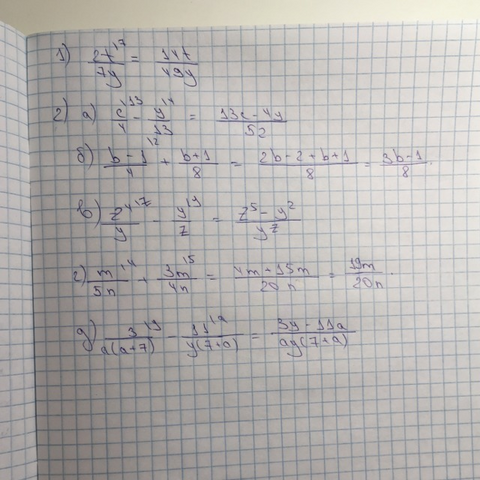 1) 2t^{\17}/7y = 14t/49y
2) а) c^{\13}/4 - y^{\4}/13 = 13c - 4y/52
б) b - 1^{\2}/4 + b + 1/8 = 2b - 2 + b + 1/8 = 3b - 1/8.
в) z^{4 \z}/y - y^{\y}/z = z^5 - y^2/yz
г) m^{\4}/5n + 3m^{\5}/4n = 4m + 15m/20n = 19m/20n.
д) 3^{\y}/a(a+7) - 11^{\a}/y(7+a) = 3y - 11a/ay(7+a)